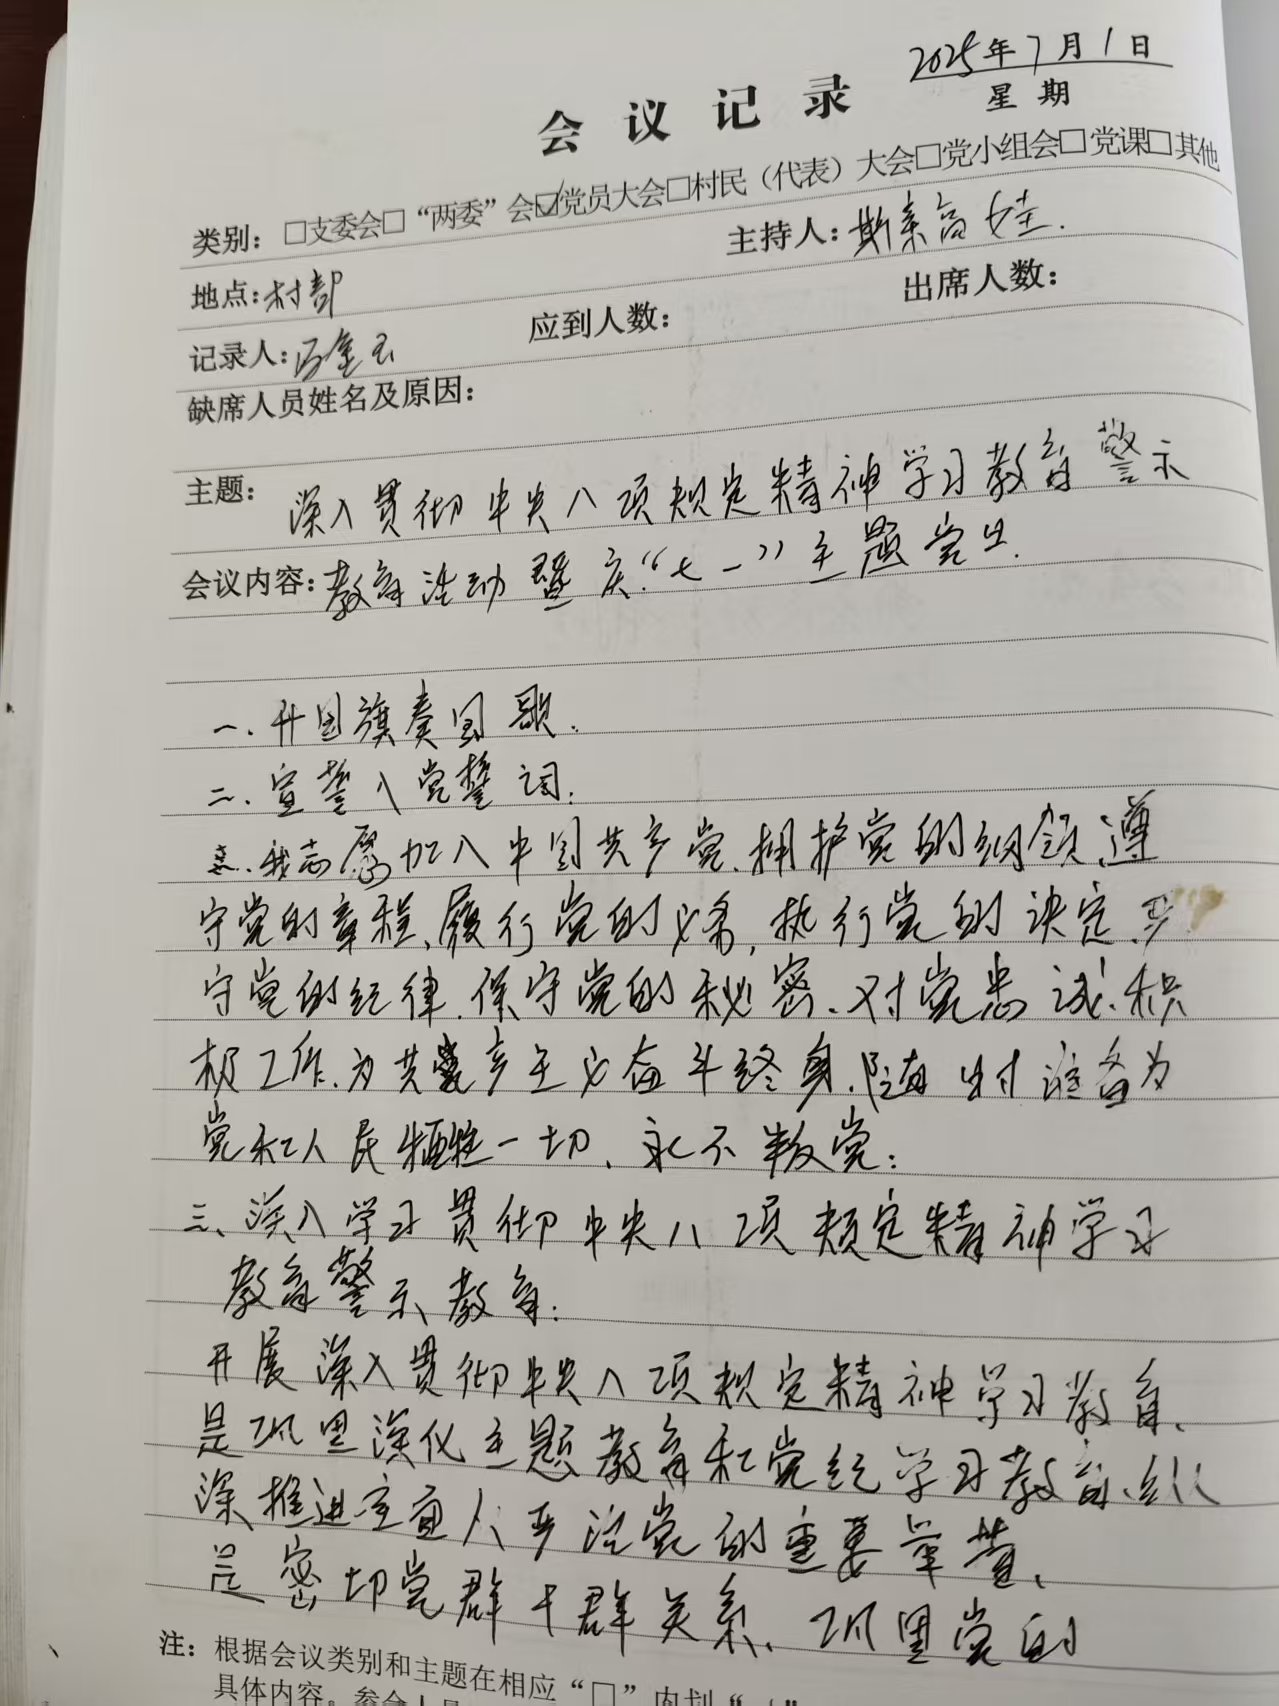 2025年7月1日
会议记录
星期
类别：□支委会□“两委”会☑党员大会□村民（代表）大会□党小组会□党课□其他
地点：村部
主持人：斯琴高娃.
记录人：
应到人数：
出席人数：
缺席人员姓名及原因：
主题：深入贯彻中央八项规定精神学习教育警示
会议内容：教育活动暨庆“七一”主题党日.
一.升国旗奏国歌.
二.宣誓入党誓词:
我志愿加入中国共产党、拥护党的纲领、遵
守党的章程、履行党的义务,执行党的决定、严
守党的纪律、保守党的秘密、对党忠诚、积
极工作、为共产主义奋斗终身、随时准备为
党和人民牺牲一切、永不叛党:
三、深入学习贯彻中央八项规定精神学习
教育警示教育:
开展深入贯彻中央八项规定精神学习教育、
是巩固深化主题教育和党纪学习教育、纵
深推进全面从严治党的重要举措、
是密切党群干群关系、巩固党的
注：根据会议类别和主题在相应“□”内划“
具体内容。参会人员